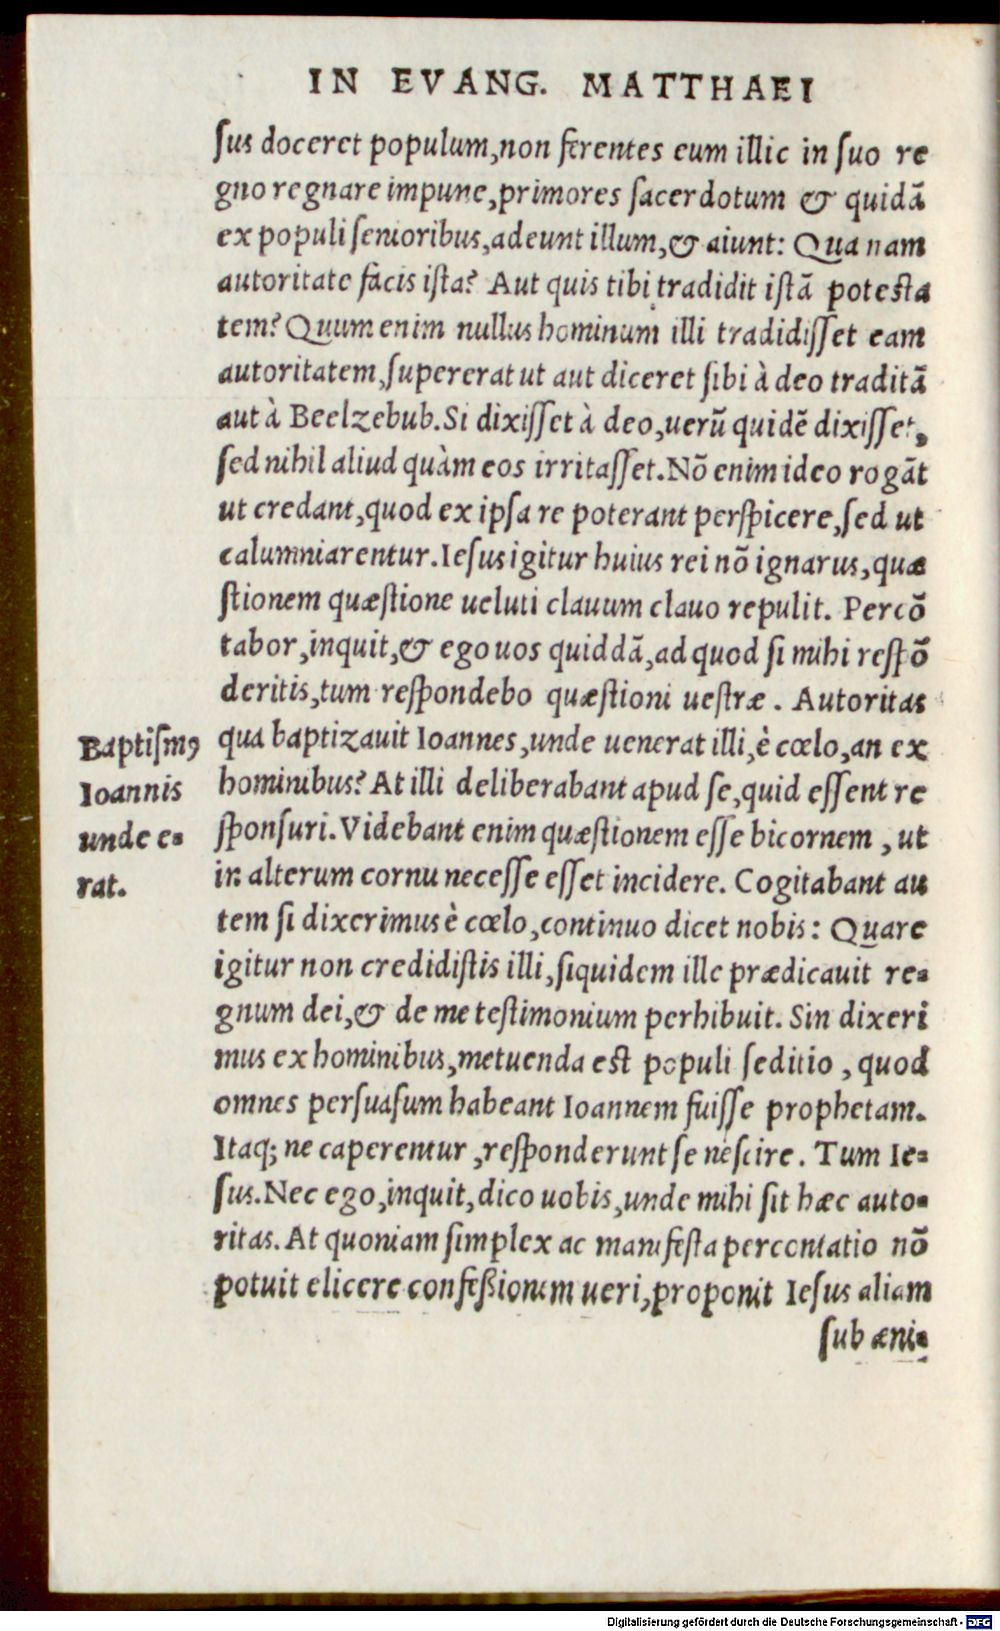 IN EVANG. MATTHAEI
ſus doceret populum, non ferentes eum illic in ſuo re
gno regnare impune, primores ſacerdotum & quidã
ex populi ſenioribus, adeunt illum, & aiunt: Qua nam
autoritate facis iſta? Aut quis tibi tradidit iſtã poteſta
tem? Quum enim nullus hominum illi tradidiſſet eam
autoritatem, ſupererat ut aut diceret ſibi à deo traditã
aut à Beelzebub. Si dixiſſet à deo, uerũ quidẽ dixiſſet,
ſed nihil aliud quàm eos irritaſſet. Nõ enim ideo rogãt
ut credant, quod ex ipſa re poterant perſpicere, ſed ut
calumniarentur. Ieſus igitur huius rei nõ ignarus, quæ
ſtionem quæſtione ueluti clauum clauo repulit. Percõ
tabor, inquit, & ego uos quiddã, ad quod ſi mihi reſpõ
deritis, tum reſpondebo quæſtioni ueſtræ. Autoritas
qua baptizauit Ioannes, unde uenerat illi, è cœlo, an ex
hominibus? At illi deliberabant apud ſe, quid eſſent re
ſponſuri. Videbant enim quæſtionem eſſe bicornem, ut
in alterum cornu neceſſe eſſet incidere. Cogitabant au
tem ſi dixerimus è cœlo, continuo dicet nobis: Quare
igitur non credidiſtis illi, ſiquidem ille prædicauit re-
gnum dei, & de me teſtimonium perhibuit. Sin dixeri
mus ex hominibus, metuenda eſt populi ſeditio, quod
omnes perſuaſum habeant Ioannem fuiſſe prophetam.
Itaq; ne caperentur, reſponderunt ſe neſcire. Tum Ie-
ſus. Nec ego, inquit, dico uobis, unde mihi ſit hæc auto-
ritas. At quoniam ſimplex ac manifeſta percontatio nõ
potuit elicere confeßionem ueri, proponit Ieſus aliam
ſub æni-
Baptiſmꝰ
Ioannis
unde e-
rat.
Digitalisierung gefördert durch die Deutsche Forschungsgemeinschaft - DFG